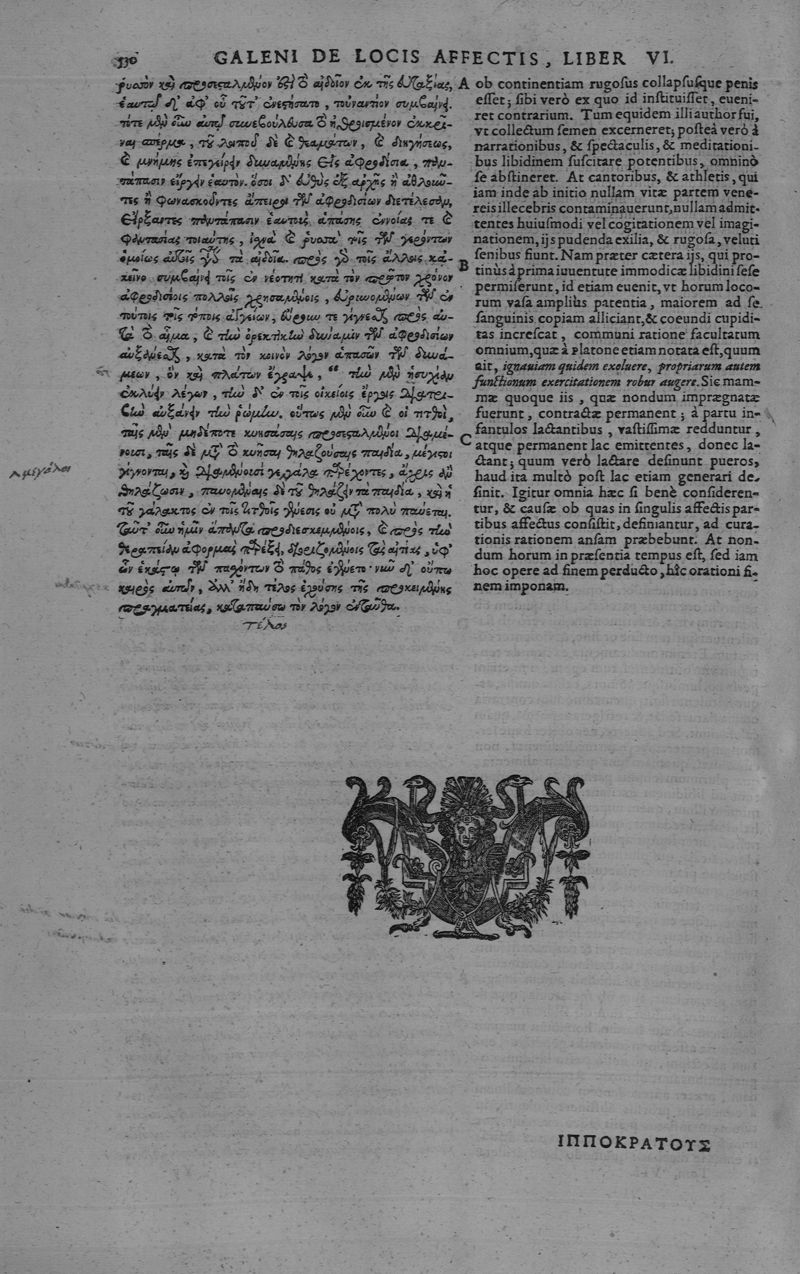 330 GALENI DE LOCIS AFFECTIS, LIBER VI.
ῥυσὸν καὶ προσεσταλμένον ἐστὶ τὸ αἰδοῖον ἐκ τῆς εὐταξίας,
ἑαυτοῦ δ' ἀφ' οὗ τοῦτ' ἐνεστήσατο, τοὐναντίον συμβαίνει.
τότε μὲν οὖν αὐτῷ συνεβούλευσα τὸ ἠθροισμένον ἐκκρῖ-
ναι σπέρμα, τοῦ λοιποῦ δὲ καὶ θεαμάτων, καὶ διηγήσεως,
καὶ μνήμης ἐπεγείρειν δυναμένης εἰς ἀφροδίσια, παν-
τάπασιν εἴργειν ἑαυτόν. ὅσοι δ' εὐθὺς ἐξ ἀρχῆς ἢ ἀθλοῦν-
τες ἢ φωνασκοῦντες ἄπειροι τῶν ἀφροδισίων διετέλεσαν,
εἴρξαντες παντάπασιν ἑαυτοὺς ἁπάσης ἐννοίας τε καὶ
φαντασίας τοιαύτης, ἰσχνὰ καὶ ῥυσὰ τοῖς τῶν γερόντων
ὁμοίως αὐτοῖς τὰ αἰδοῖα. πρὸς γὰρ τοῖς ἄλλοις κά-
κεῖνο συμβαίνει τοῖς ἐν νεότητι κατὰ τὸν πρῶτον χρόνον
ἀφροδισίοις πολλοῖς χρησαμένοις, εὐρυνομένων τῶν ἐν
τούτοις τοῖς τόποις ἀγγείων, εὔρουν τε γίγνεσθαι πρὸς αὐ-
τὰ τὸ αἷμα, καὶ τὴν ὀρεκτικὴν δύναμιν τῶν ἀφροδισίων
αὐξάνεσθαι, κατὰ τὸν κοινὸν λόγον ἁπασῶν τῶν δυνά-
μεων, ὃν καὶ πλάτων ἔγραψε, τὴν μὲν ἡσυχίαν
ἐκλύειν λέγων, τὴν δ' ἐν τοῖς οἰκείοις ἔργοις διατρι-
βὴν αὐξάνειν τὴν ῥώμην. οὕτως μὲν οὖν καὶ οἱ τιτθοὶ,
ταῖς μὲν μηδέποτε κυησάσαις προσεσταλμένοι διαμέ-
νουσι, ταῖς δὲ μετὰ τὸ κυῆσαι θηλαζούσαις παιδία, μέγιστοι
γίγνονται, καὶ διαμένουσι γάλα παρέχοντες, ἄχρις ἂν
θηλάζωσιν, παυομέναις δὲ τοῦ θηλάζειν τὰ παιδία, καὶ ἡ
τοῦ γάλακτος ἐν τοῖς τιτθοῖς γένεσις οὐ μετὰ πολὺ παύεται.
ταῦτ' οὖν ἡμῖν ἅπαντα προδιεσκεμμένοις, καὶ πρὸς τὴν
θεραπείαν ἀφορμὰς παρέξει, διοριζομένοις τὰς αἰτίας, ὑφ'
ὧν ἑκάστῳ τῶν παθόντων τὸ πάθος ἐγένετο· νυνὶ δ' οὔπω
καιρὸς αὐτῶν, ἀλλ' ἤδη τέλος ἐχούσης τῆς προκειμένης
πραγματείας, καταπαύσω τὸν λόγον ἐνταῦθα.
Τέλος
A ob continentiam rugoſus collapſuſque penis
eſſet; ſibi verò ex quo id inſtituiſſet, eueni-
ret contrarium. Tum equidem illi author fui,
vt collectum ſemen excerneret; poſteà verò à
narrationibus, & ſpectaculis, & meditationi-
bus libidinem ſuſcitare potentibus, omninò
ſe abſtineret. At cantoribus, & athletis, qui
iam inde ab initio nullam vitæ partem vene-
reis illecebris contaminauerunt, nullam admit-
tentes huiuſmodi vel cogitationem vel imagi-
nationem, ijs pudenda exilia, & rugoſa, veluti
ſenibus fiunt. Nam præter cætera ijs, qui pro-
B tinùs à prima iuuentute immodicæ libidini ſeſe
permiſerunt, id etiam euenit, vt horum loco-
rum vaſa ampliùs patentia, maiorem ad ſe
ſanguinis copiam alliciant, & coeundi cupidi-
tas increſcat, communi ratione facultatum
omnium, quæ à Platone etiam notata eſt, quum
ait, ignauiam quidem exoluere, propriarum autem
functionum exercitationem robur augere. Sic mam-
mæ quoque iis, quæ nondum imprægnatæ
fuerunt, contractæ permanent; à partu in-
fantulos lactantibus, vaſtiſſimæ redduntur,
C atque permanent lac emittentes, donec la-
ctant; quum verò lactare deſinunt pueros,
haud ita multò poſt lac etiam generari de-
ſinit. Igitur omnia hæc ſi benè conſideren-
tur, & cauſæ ob quas in ſingulis affectis par-
tibus affectus conſiſtit, definiantur, ad cura-
tionis rationem anſam præbebunt. At non-
dum horum in præſentia tempus eſt, ſed iam
hoc opere ad finem perducto, hîc orationi fi-
nem imponam.
ΙΠΠΟΚΡΑΤΟΥΣ